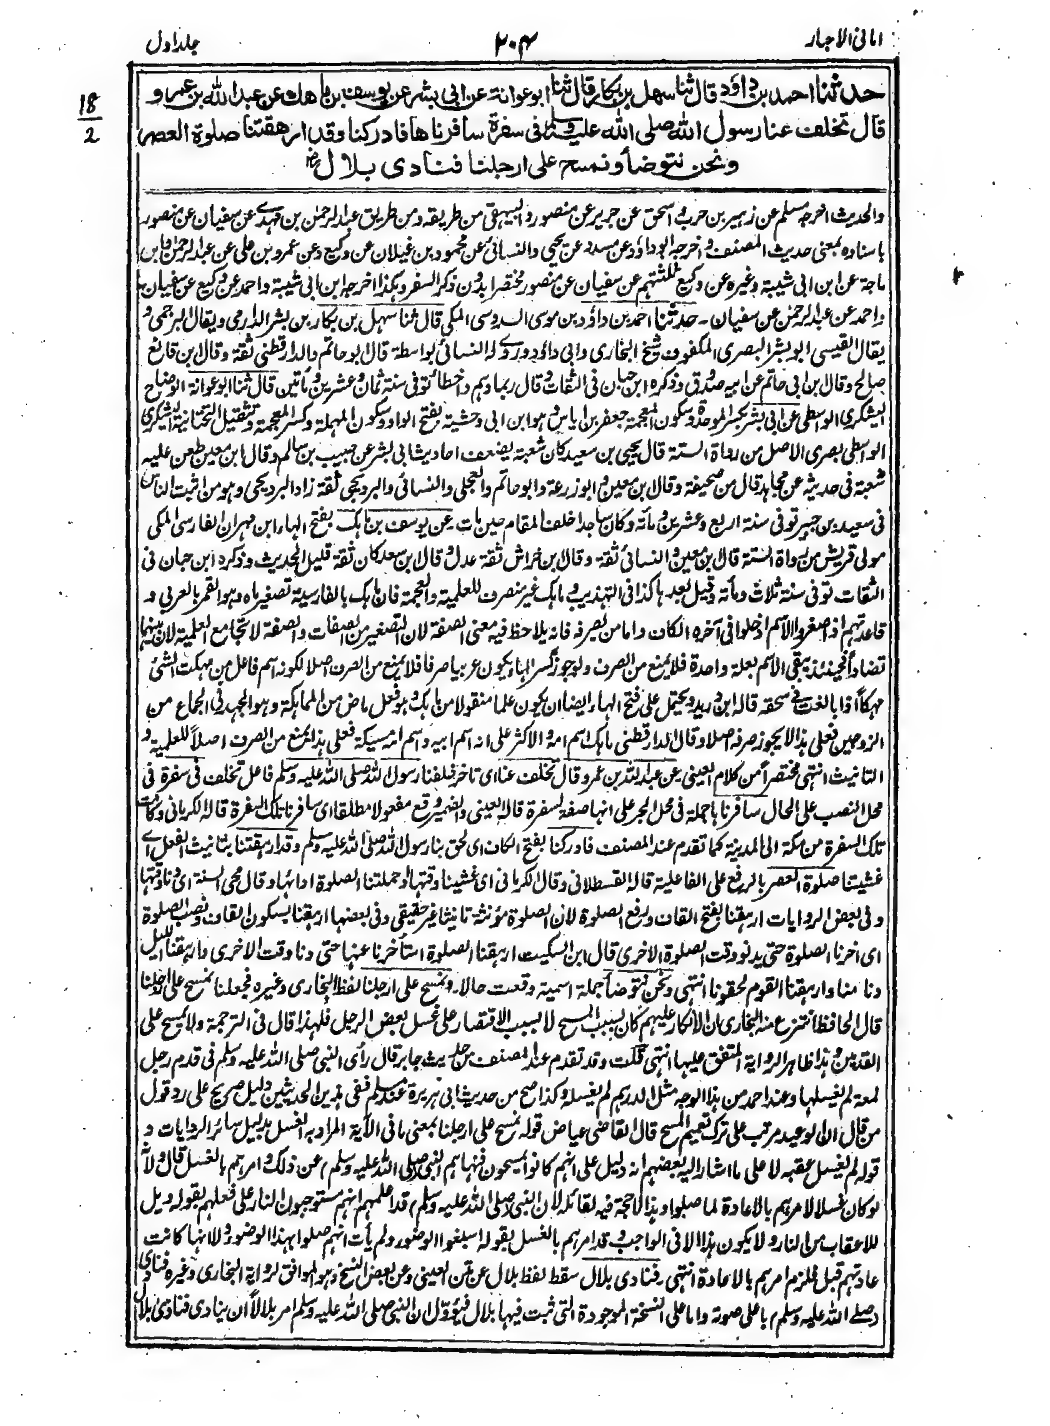 امانی الاحبار
۲۰۴
جلد اول
18
2
حدثنا احمد بن داؤد قال ثنا سهل بن بكار قال ثنا ابو عوانة عن ابی بشر عن یوسف بن ماهك عن عبد الله بن عمرو
قال تخلف عنا رسول الله صلی الله علیه وسلم فی سفرة سافرناها فادركنا وقد ارهقتنا صلوة العصر
ونحن نتوضأ ونمسح علی ارجلنا فنادی بلال
والحدیث اخرجه مسلم عن زهیر بن حرب و اسحق عن جریر عن منصور و البیهقی من طریقه ومن طریق عبد الرحمن بن مهدی عن سفیان عن منصور
باسناده بمعنی حدیث المصنف و اخرجه ابو داؤد عن مسدد عن یحیی والنسائی عن محمود بن غیلان عن وکیع وعن عمرو بن علی عن عبد الرحمن وابن
ماجة عن ابن ابی شیبة وغیره عن وکیع ثلثتهم عن سفیان عن منصور مختصرا بدون ذکر السفر وکذا اخرجه ابن ابی شیبة واحمد عن وکیع عن سفیان
واحمد عن عبد الرحمن عن سفیان۔ حدثنا احمد بن داؤد بن موسی السدوسی المکی قال ثنا سهل بن بکار بن بشر الدارمی ویقال البرجمی و
یقال القیسی ابو بشر البصری المکفوف شیخ البخاری وابی داؤد وروی له النسائی بواسطة قال ابو حاتم والدارقطنی ثقة وقال ابن قانع
صالح وقال ابن ابی حاتم عن ابیه صدوق وذکره ابن حبان فی الثقات وقال ربما وهم واخطأ توفی سنة ثمان وعشرین ومأتین قال ثنا ابو عوانة الوضاح
الیشکری الواسطی عن ابی بشر بکسر الموحدة وسکون المعجمة جعفر بن ایاس وهو ابن ابی وحشیة بفتح الواو وسکون المهملة وکسر المعجمة وتثقیل التحتانیة الیشکری
الواسطی بصری الاصل من رواة الستة قال یحیی بن سعید کان شعبة یضعف احادیث ابی بشر عن حبیب بن سالم وقال ابن معین طعن علیه
شعبة فی حدیثه عن مجاهد قال من صحیفة وقال ابن معین وابو زرعة وابو حاتم والعجلی والنسائی والبردیجی ثقة زاد البردیجی وهو من اثبت الناس
فی سعید بن جبیر توفی سنة اربع وعشرین ومأته وکان ساجدا خلف المقام حین مات۔ عن یوسف بن ماهک بفتح الهاء ابن مهران الفارسی المکی
مولی قریش من رواة الستة قال ابن معین والنسائی ثقة وقال ابن خراش ثقة عدل وقال ابن سعد کان ثقة قلیل الحدیث وذکره ابن حبان فی
الثقات توفی سنة ثلاث ومأته وقیل بعدها کذا فی التهذیب وماهک غیر منصرف للعلمیة والعجمة فان ماهک بالفارسیة تصغیر ماه وهو القمر بالعربی و
قاعدتهم اذا صغروا الاسم ادخلوا فی آخره الکاف واما من یصرفه فانه یلاحظ فیه معنی الصفة لان التصغیر من الصفات والصفة لا تجامع العلمیة لان بینهما
تضادا فحینئذ یبقی الاسم بعلة واحدة فلا یمنع من الصرف ولو جوز کسر الهاء یکون عربیا صرفا فلا یمنع من الصرف اصلا لکونه اسم فاعل من مهکت الشئ
مهکا اذا بالغت فی سحقه قاله ابن درید ویحتمل علی فتح الهاء ایضا ان یکون علما منقولا من ماهک وهو فعل ماض من المماهکة وهو الجهد فی الجماع من
الزوجین فعلی هذا لا یجوز صرفه اصلا وقال الدارقطنی ماهک اسم امه و الاکثر علی انه اسم ابیه واسم امه مسیکة فعلی هذا یمنع من الصرف اصلا للعلمیة و
التانیث انتهی مختصرا من کلام العینی۔ عن عبد الله بن عمرو قال تخلف عنا ای تاخر خلفنا رسول الله صلی الله علیه وسلم فاعل تخلف فی سفرة فی
محل النصب علی الحال سافرناها جملة فی محل الجر علی انها صفة لسفرة قاله العینی والضمیر وقع مفعولا مطلقا ای سافرنا تلک السفرة قاله الکرمانی وکانت
تلک السفرة من مکة الی المدینة کما تقدم عند المصنف فادرکنا بفتح الکاف ای لحق بنا رسول الله صلی الله علیه وسلم وقد ارهقتنا بتانیث الفعل ای
غشیتنا صلوة العصر بالرفع علی الفاعلیة قاله القسطلانی وقال الکرمانی ای غشینا وقتها او حملتنا الصلوة ادائها وقال محی السنة ای دنا وقتها
وفی بعض الروایات ارهقنا بفتح القاف وبرفع الصلوة لان الصلوة مؤنثة تانیثا غیر حقیقی وفی بعضها ارهقنا بسکون القاف ونصب الصلوة
ای اخرنا الصلوة حتی یدنو وقت الصلوة الاخری قال ابن السکیت ارهقنا الصلوة استأخرنا عنها حتی دنا وقت الاخری وارهقنا اللیل
دنا منا وارهقنا القوم لحقونا انتهی ونحن نتوضأ جملة اسمیة وقعت حالا۔ ونمسح علی ارجلنا لفظ البخاری وغیره فجعلنا نمسح علی ارجلنا
قال الحافظ انتزع منه البخاری ان الانکار علیهم کان بسبب المسح لا بسبب الاقتصار علی غسل بعض الرجل فلهذا قال فی الترجمة ولا یمسح علی
القدمین وهذا ظاهر الروایة المتفق علیها انتهی قلت وقد تقدم عند المصنف من حدیث جابر قال رأی النبی صلی الله علیه وسلم فی قدم رجل
لمعة لم یغسلها وعند احمد من هذا الوجه مثل الدرهم لم یغسله وکذا صح من حدیث ابی هریرة عند مسلم ففی هذین الحدیثین دلیل صریح علی رد قول
من قال ان الوعید مرتب علی ترک تعمیم المسح قال القاضی عیاض قوله نمسح علی ارجلنا بمعنی ما فی الآیة المراد به الغسل بدلیل سائر الروایات و
قوله لم یغسل عقبه لا علی ما اشار الیه بعضهم انه دلیل علی انهم کانوا یمسحون فنهاهم النبی (صلی الله علیه وسلم) عن ذلک و امرهم بالغسل قال ولانه
لو کان غسلا لامرهم بالاعادة لما صلوا وهذا لا حجة فیه لقائله لان النبی (صلی الله علیه وسلم) قد اعلمهم انهم مستوجبون النار علی فعلهم بقوله ویل
للاعقاب من النار ولا یکون هذا الا فی الواجب وقد امرهم بالغسل بقوله اسبغوا الوضوء ولم یأت انهم صلوا بهذا الوضوء ولا انها کانت
عادتهم قبل فیلزم امرهم بالاعادة انتهی۔ فنادی بلال سقط لفظ بلال عن متن العینی وعن بعض النسخ وهو الموافق لروایة البخاری وغیره فنادی
(صلی الله علیه وسلم) باعلی صوته واما علی النسخة الموجودة التی ثبت فیها بلال فیؤول ان النبی صلی الله علیه وسلم امر بلالا ان ینادی فنادی بلال